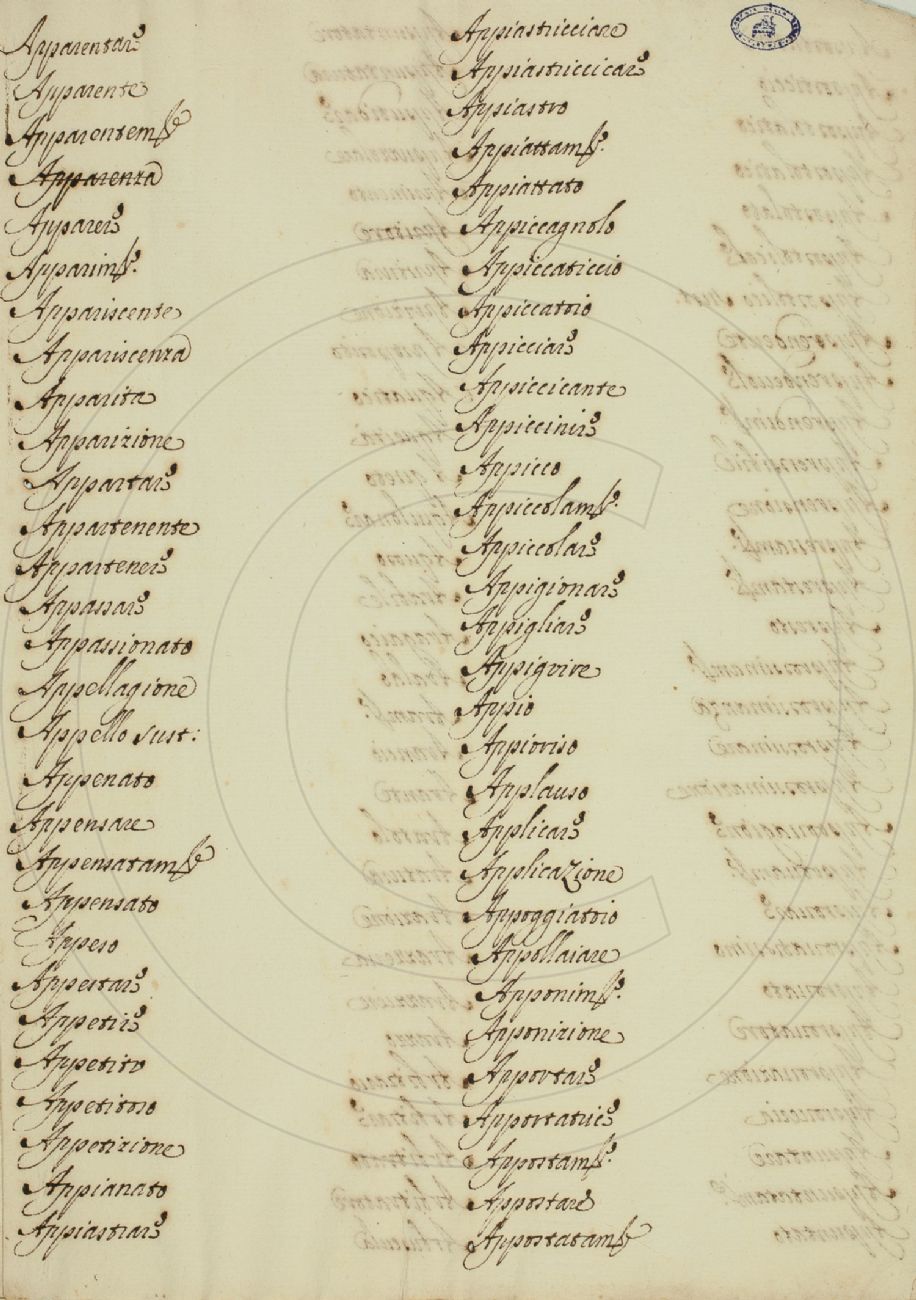 Apparentare
Apparente
Apparentem.te
Apparenza
Apparere
Apparim.to
Appariscente
Appariscenza
Apparita
Apparizione
Appartare
Appartenente
Appartenere
Appassare
Appassionato
Appellagione
Appello sust:
Appenato
Appensare
Appensatam.te
Appensato
Appeso
Appestare
Appetire
Appetito
Appetitoso
Appetizione
Appianato
Appiastrare
Appiastricciare
Appiastriccicare
Appiastro
Appiattam.to
Appiattato
Appiccagnolo
Appiccaticcio
Appiccatoio
Appicciare
Appiccicante
Appiccinire
Appicco
Appiccolam.to
Appiccolare
Appigionare
Appigliare
Appigvire
Appio
Appioriso
Applauso
Applicare
Applicazione
Appoggiatoio
Appollaiare
Apponim.to
Apponizione
Apportare
Apportatrice
Appostam.to
Appostare
Appostatam.te